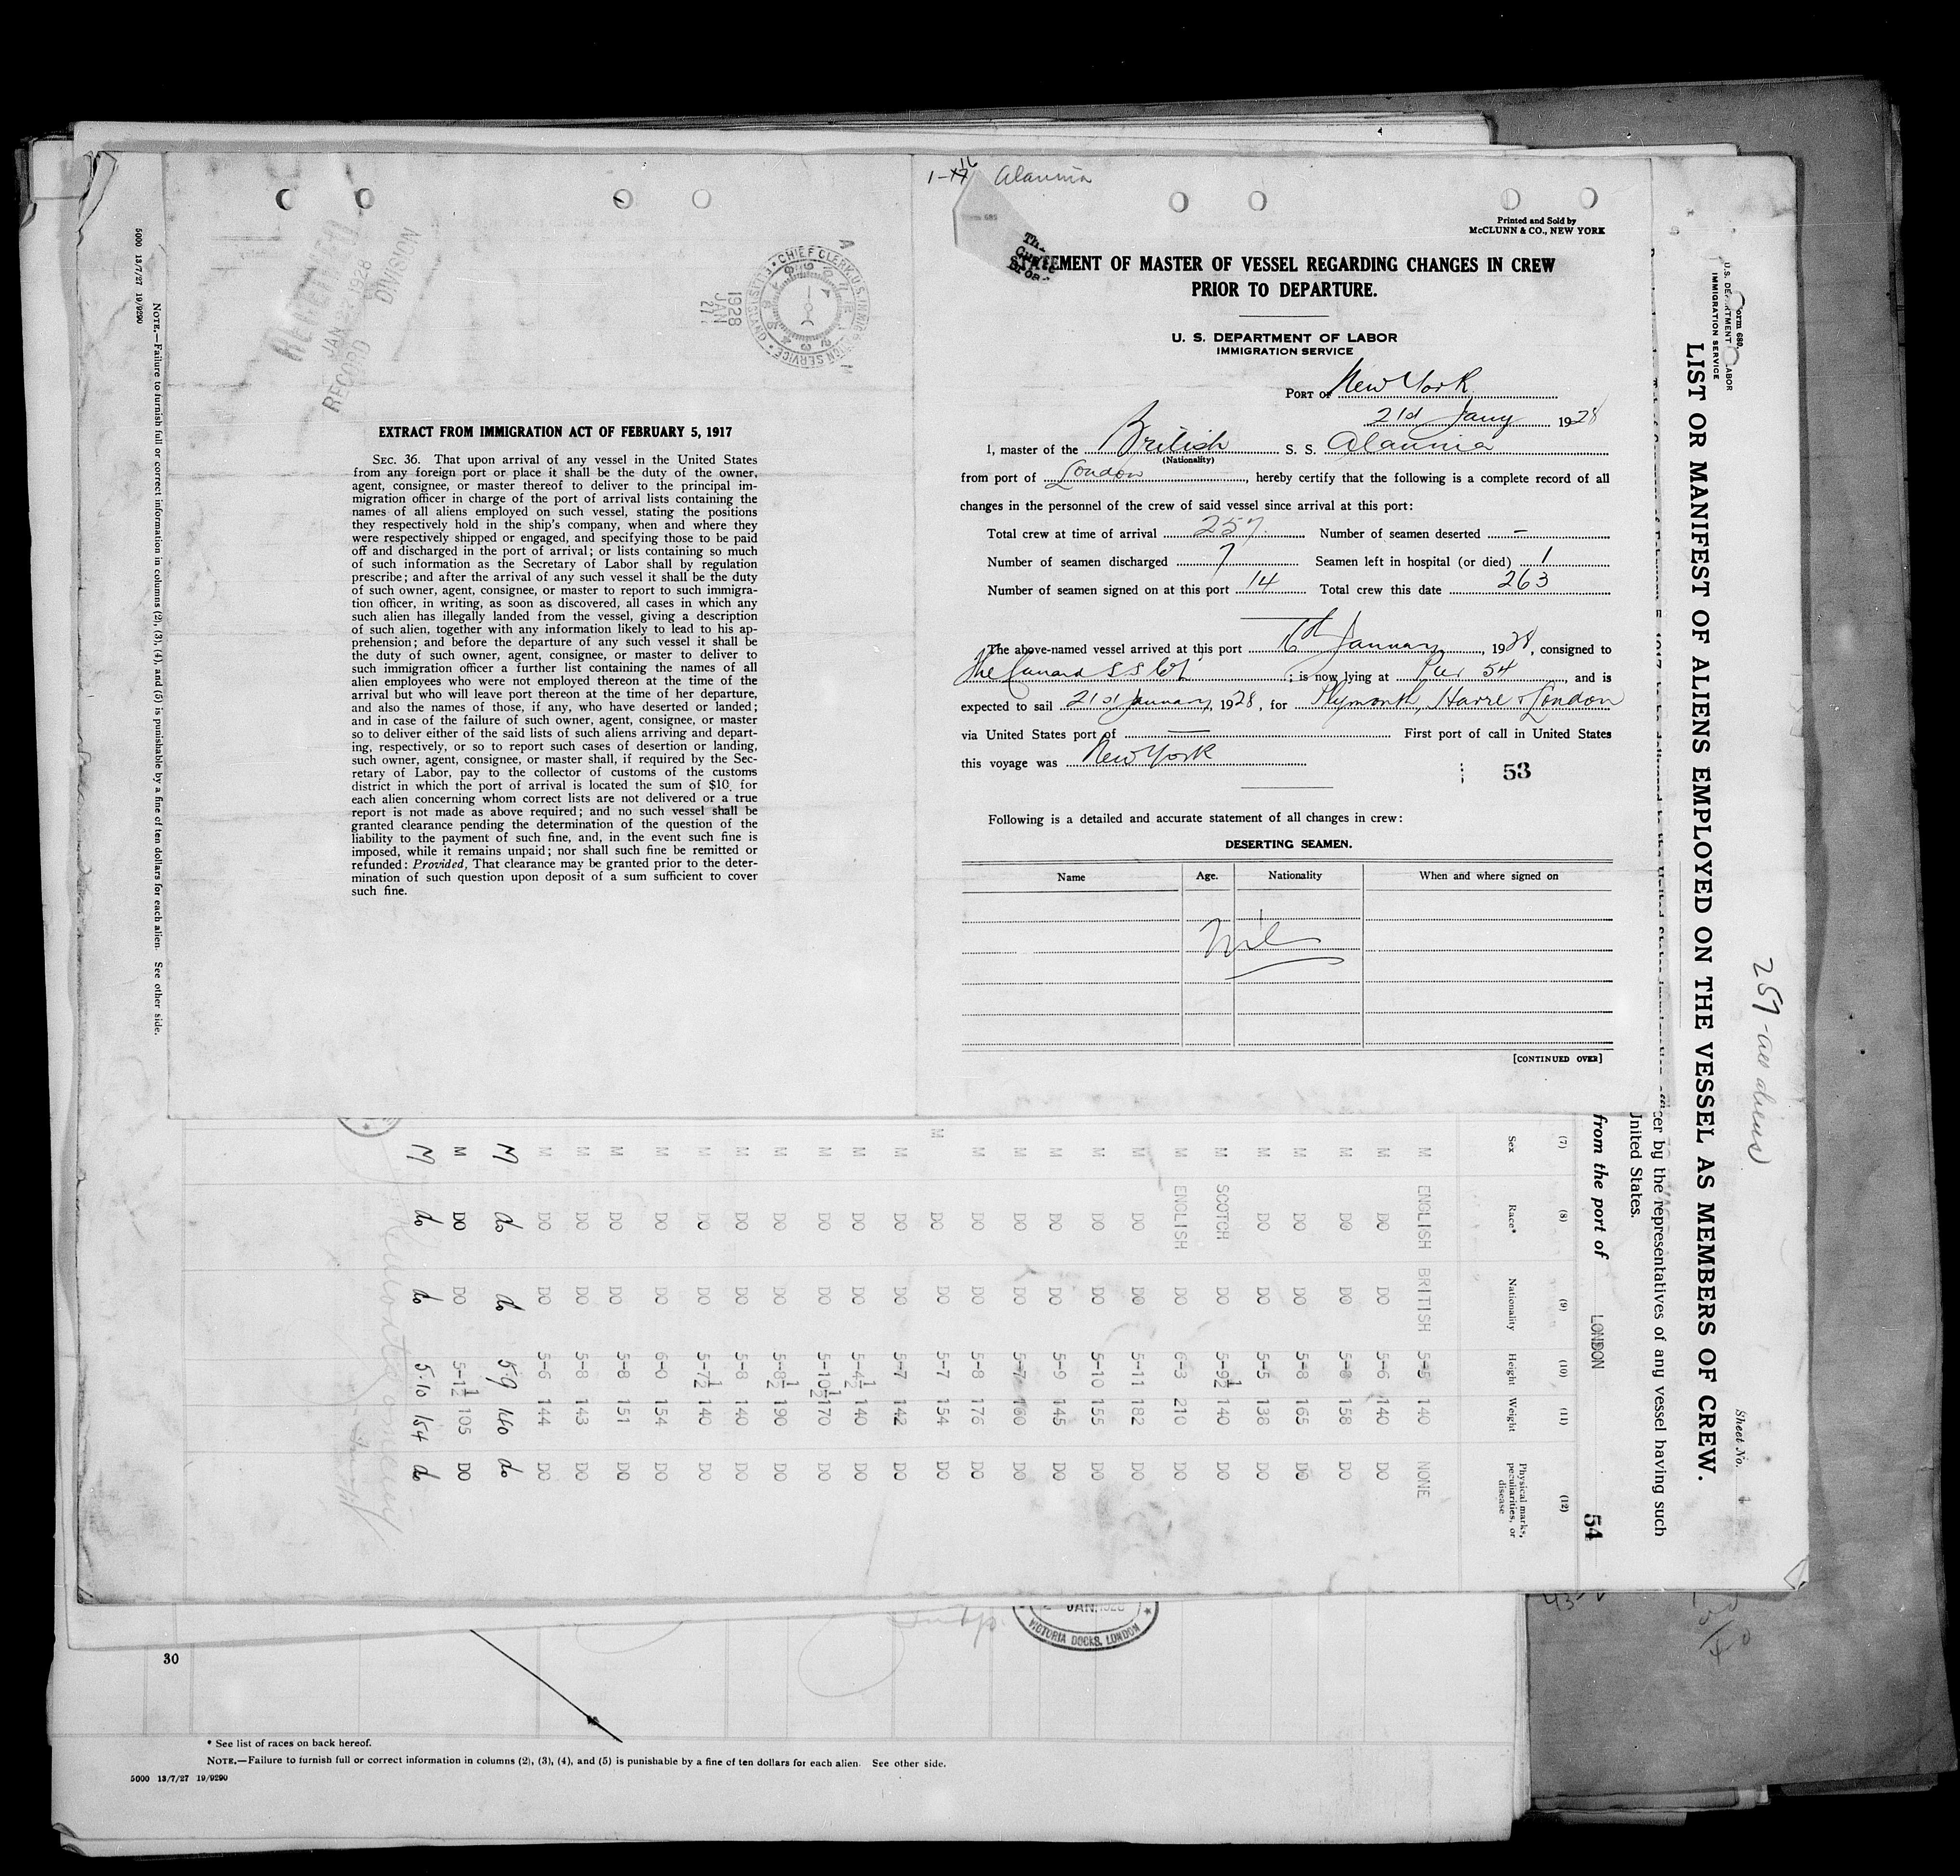 Alaunia
Printed and Sold by
McCLUNN & CO., NEW YORK
OF MASTER OF VESSEL REGARDING CHANGES IN CREW
PRIOR TO DEPARTURE.
U. S. DEPARTMENT OF LABOR
IMMIGRATION SERVICE
PORT OF New York
21st Jany 1928
I, master of the British S. S. Alaunia
(Nationality)
from port of London, hereby certify that the following is a complete record of all
changes in the personnel of the crew of said vessel since arrival at this port:
Total crew at time of arrival 257. Number of seamen deserted –
Number of seamen discharged 7 Seamen left in hospital (or died) 1
Number of seamen signed on at this port 14 Total crew this date 263
The above-named vessel arrived at this port January, 1928, consigned to
The Cunard S S Co; is now lying at Pier 54, and is
expected to sail 21st January, 1928, for Plymouth, Havre & London
via United States port of — First port of call in United States
this voyage was New York
53
Following is a detailed and accurate statement of all changes in crew:
DESERTING SEAMEN.
Name Age. Nationality When and where signed on
Nil
[CONTINUED OVER]
JAN 23 1928
RECORD DIVISION
1928
JAN
21
EXTRACT FROM IMMIGRATION ACT OF FEBRUARY 5, 1917
SEC. 36. That upon arrival of any vessel in the United States
from any foreign port or place it shall be the duty of the owner,
agent, consignee, or master thereof to deliver to the principal im-
migration officer in charge of the port of arrival lists containing the
names of all aliens employed on such vessel, stating the positions
they respectively hold in the ship's company, when and where they
were respectively shipped or engaged, and specifying those to be paid
off and discharged in the port of arrival; or lists containing so much
of such information as the Secretary of Labor shall by regulation
prescribe; and after the arrival of any such vessel it shall be the duty
of such owner, agent, consignee, or master to report to such immigra-
tion officer, in writing, as soon as discovered, all cases in which any
such alien has illegally landed from the vessel, giving a description
of such alien, together with any information likely to lead to his ap-
prehension; and before the departure of any such vessel it shall be
the duty of such owner, agent, consignee, or master to deliver to
such immigration officer a further list containing the names of all
alien employees who were not employed thereon at the time of the
arrival but who will leave port thereon at the time of her departure,
and also the names of those, if any, who have deserted or landed;
and in case of the failure of such owner, agent, consignee, or master
so to deliver either of the said lists of such aliens arriving and depart-
ing, respectively, or so to report such cases of desertion or landing,
such owner, agent, consignee, or master shall, if required by the Sec-
retary of Labor, pay to the collector of customs of the customs
district in which the port of arrival is located the sum of $10 for
each alien concerning whom correct lists are not delivered or a true
report is not made as above required; and no such vessel shall be
granted clearance pending the determination of the question of the
liability to the payment of such fine, and, in the event such fine is
imposed, while it remains unpaid; nor shall such fine be remitted or
refunded: Provided, That clearance may be granted prior to the deter-
mination of such question upon deposit of a sum sufficient to cover
such fine.
257 - all aliens
Sheet No.
Form 680
IMMIGRATION SERVICE
LIST OR MANIFEST OF ALIENS EMPLOYED ON THE VESSEL AS MEMBERS OF CREW.
by the representatives of any vessel having such
United States.
from the port of LONDON 54
(7) (8) (9) (10) (11) (12)
Sex Race* Nationality Height Weight Physical marks, peculiarities, or disease
M ENGLISH BRITISH 5-5 140 NONE
M DO DO 5-6 140 DO
M DO DO 5-8 158 DO
M DO DO 5-8 165 DO
M DO DO 5-5 138 DO
M SCOTCH DO 5-9½ 140 DO
M ENGLISH DO 6-3 210 DO
M DO DO 5-11 182 DO
M DO DO 5-10 155 DO
M DO DO 5-9 145 DO
M DO DO 5-7 160 DO
M DO DO 5-8 176 DO
M DO DO 5-7 154 DO
M DO DO 5-7 142 DO
M DO DO 5-4½ 140 DO
M DO DO 5-10½ 170 DO
M DO DO 5-8½ 190 DO
M DO DO 5-8 140 DO
M DO DO 5-7½ 140 DO
M DO DO 6-0 154 DO
M DO DO 5-8 151 DO
M DO DO 5-8 143 DO
M DO DO 5-6 144 DO
M do do 5.9 160 do
M DO DO 5-1½ 105 DO
M do do 5.10 154 do
NOTE.—Failure to furnish full or correct information in columns (2), (3), (4), and (5) is punishable by a fine of ten dollars for each alien. See other side.
5000 13/7/27 19/9290
VICTORIA DOCKS, LONDON
30
* See list of races on back hereof.
NOTE.—Failure to furnish full or correct information in columns (2), (3), (4), and (5) is punishable by a fine of ten dollars for each alien. See other side.
5000 13/7/27 19/9290